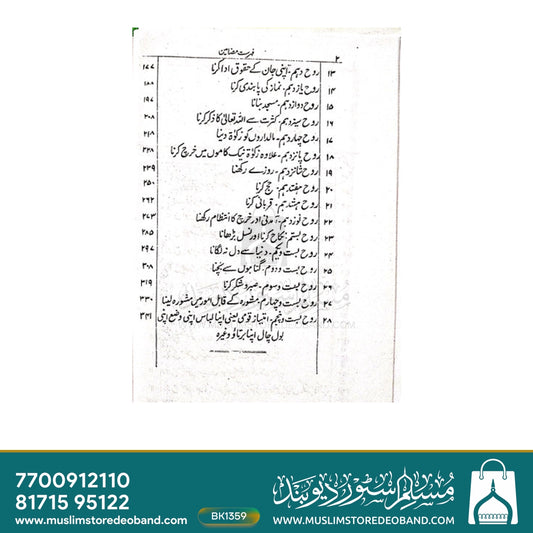 ۲ فہرست مضامین
۱۳ روح دہم۔ اپنی جان کے حقوق ادا کرنا ۱۷۷
۱۴ روح یازدہم۔ نماز کی پابندی کرنا ۱۸۸
۱۵ روح دوازدہم۔ مسجد بنانا ۱۹۷
۱۶ روح سیزدہم۔ کثرت سے اللہ تعالیٰ کا ذکر کرنا ۲۰۸
۱۷ روح چہاردہم۔ مالداروں کو زکوٰۃ دینا ۲۱۸
۱۸ روح پانزدہم۔ علاوہ زکوٰۃ نیک کاموں میں خرچ کرنا ۲۲۸
۱۹ روح شانزدہم۔ روزے رکھنا ۲۳۹
۲۰ روح ہفتدہم۔ حج کرنا ۲۵۰
۲۱ روح ہشتدہم۔ قربانی کرنا ۲۶۲
۲۲ روح نوزدہم۔ آمدنی اور خرچ کا انتظام رکھنا ۲۷۳
۲۳ روح بستم۔ نکاح کرنا اور نسل بڑھانا ۲۸۵
۲۴ روح بست ویکم۔ دنیا سے دل نہ لگانا ۲۹۷
۲۵ روح بست و دوم۔ گناہوں سے بچنا ۳۰۸
۲۶ روح بست و سوم۔ صبر و شکر کرنا ۳۱۹
۲۷ روح بست و چہارم۔ مشورہ کے قابل امور میں مشورہ لینا ۳۳۰
۲۸ روح بست و پنجم۔ امتیاز قومی یعنی اپنا لباس اپنی وضع اپنی ۳۴۱
بول چال اپنا برتاؤ وغیرہ
7700912110
81715 95122
www.muslimstoredeoband.com
BK1359
مسلم سٹور دیوبند
WWW.MUSLIMSTOREDEOBAND.COM